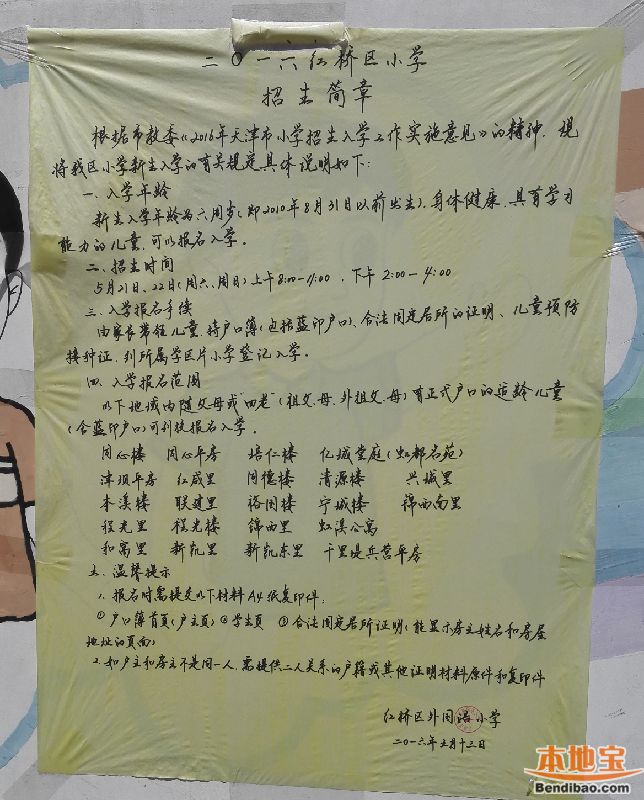 二〇一六红桥区小学
招生简章
根据市教委《2016年天津市小学招生入学工作实施意见》的精神，现
将我区小学新生入学的有关规定具体说明如下：
一、入学年龄
新生入学年龄为六周岁(即2010年8月31日以前出生)、身体健康，具有学习
能力的儿童，可以报名入学。
二、招生时间
5月21日、22日(周六、周日)上午8:00-11:00，下午2:00-4:00
三、入学报名手续
由家长带领儿童，持户口簿(包括蓝印户口)、合法固定居所的证明、儿童预防
接种证，到所属学区片小学登记入学。
四、入学报名范围
以下地域内随父母或"四老"(祖父、母、外祖父、母)有正式户口的适龄儿童
(含蓝印户口)可到校报名入学。
同心楼 同心平房 培仁楼 亿城堂庭(虹都名苑)
津坝平房 红咸里 同德楼 清源楼 兴城里
本溪楼 联建里 裕国楼 宁城楼 锦西南里
程光里 程光楼 锦西里 虹溪公寓
和寓里 新凯里 新凯东里 千里堤兵营平房
五、温馨提示
1、报名时需提交以下材料A4纸复印件：
①户口簿首页(户主页)②学生页 ③合法固定居所证明(能显示房主姓名和房屋
地址的页面)
2、如户主和房主不是同一人，需提供二人关系的户籍或其他证明材料原件和复印件
红桥区外国语小学
二〇一六年五月十三日
本地宝
Bendibao.com